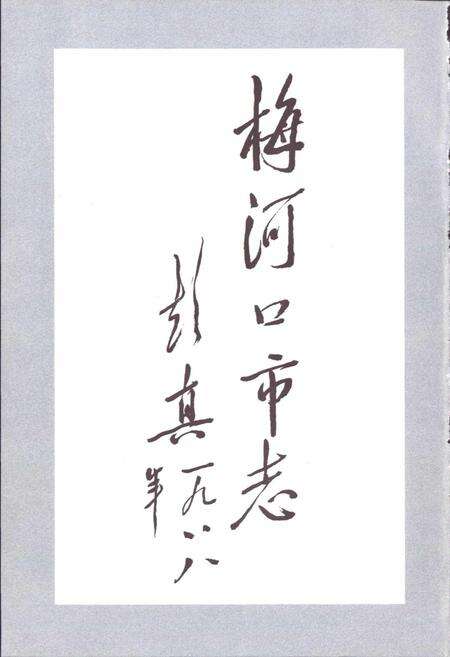 梅河口市志
彭真
一九八八
年